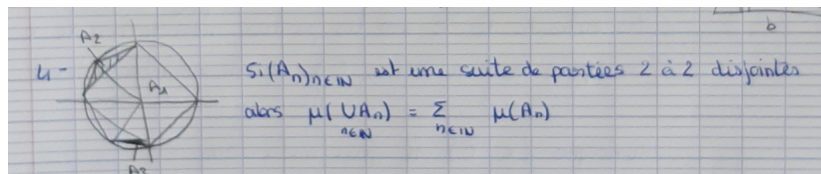 b
A2
4- A1 Si (An)n∈IN est une suite de parties 2 à 2 disjointes
alors μ(∪An) = Σ μ(An)
n∈IN n∈IN
A3